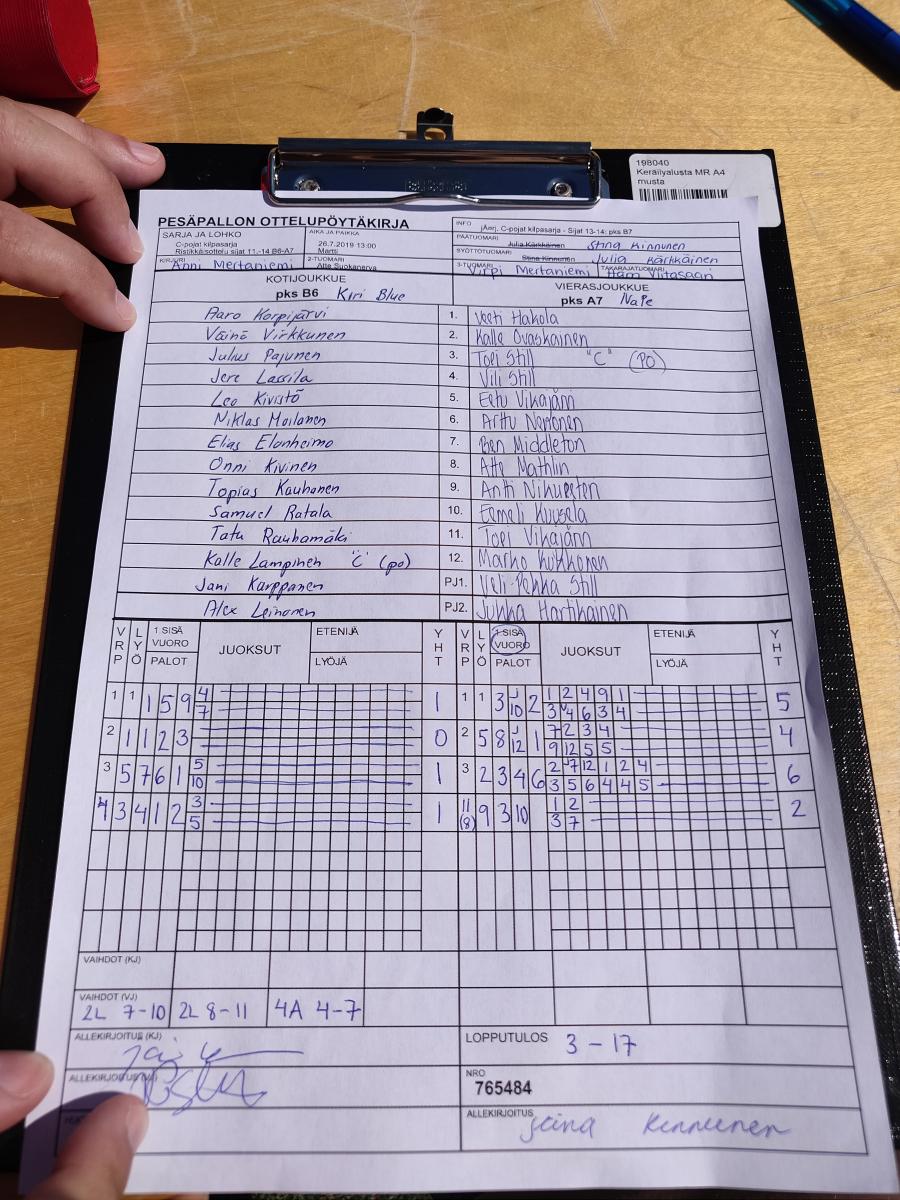 198040
Keräilyalusta MR A4
musta
PESÄPALLON OTTELUPÖYTÄKIRJA
SARJA JA LOHKO
C-pojat kilpasarja
Ristikkäisottelu sijat 11.-14 B6-A7
AIKA JA PAIKKA
26.7.2019 13:00
Martti
INFO
jÄerj. C-pojat kilpasarja - Sijat 13-14: pks B7
PÄÄTUOMARI Julia Kärkkäinen Stina Kinnunen
SYÖTTÖTUOMARI Stina Kinnunen Julia Kärkkäinen
KIRJURI Anni Mertaniemi
2-TUOMARI Atte Suokanerva
3-TUOMARI Virpi Mertaniemi
TAKARAJATUOMARI Harri Viitasaari
KOTIJOUKKUE
pks B6 Kiri Blue
VIERASJOUKKUE
pks A7 NaPe
Aaro Korpijärvi 1. Veeti Hakola
Väinö Virkkunen 2. Kalle Ovaskainen
Julius Pajunen 3. Topi Still "C" (PO)
Jere Lassila 4. Vili Still
Leo Kivistö 5. Eetu Vikajärvi
Niklas Moilanen 6. Arttu Napponen
Elias Elonheimo 7. Ben Middleton
Onni Kivinen 8. Atte Mathlin
Topias Kauhanen 9. Antti
Samuel Ratala 10. Eemeli Kuusela
Tatu Rauhamäki 11. Topi Vikajärvi
Kalle Lampinen "C" (po) 12. Marko Kukkonen
Jani Karppanen PJ1. Veli-Pekka Still
Alex Leinonen PJ2. Jukka Hartikainen
VRP LYÖ 1.SISÄ VUORO PALOT JUOKSUT ETENIJÄ LYÖJÄ YHT VRP LYÖ 1.SISÄ VUORO PALOT JUOKSUT ETENIJÄ LYÖJÄ YHT
1 1 1 5 9 4 1 1 1 3 J 2 1 2 4 9 1 5
7 10 3 4 6 3 4
2 1 1 2 3 0 2 5 8 J 1 7 2 3 4 4
12 9 12 5 5
3 5 7 6 1 5 1 3 2 3 4 6 2 7 12 1 2 4 6
10 3 5 6 4 4 5
4 3 4 1 2 3 1 11 9 3 10 1 2 2
5 (8) 3 7
VAIHDOT (KJ)
VAIHDOT (VJ)
2L 7-10 2L 8-11 4A 4-7
ALLEKIRJOITUS (KJ)
LOPPUTULOS 3 - 17
ALLEKIRJOITUS (VJ)
NRO
765484
ALLEKIRJOITUS Stina Kinnunen